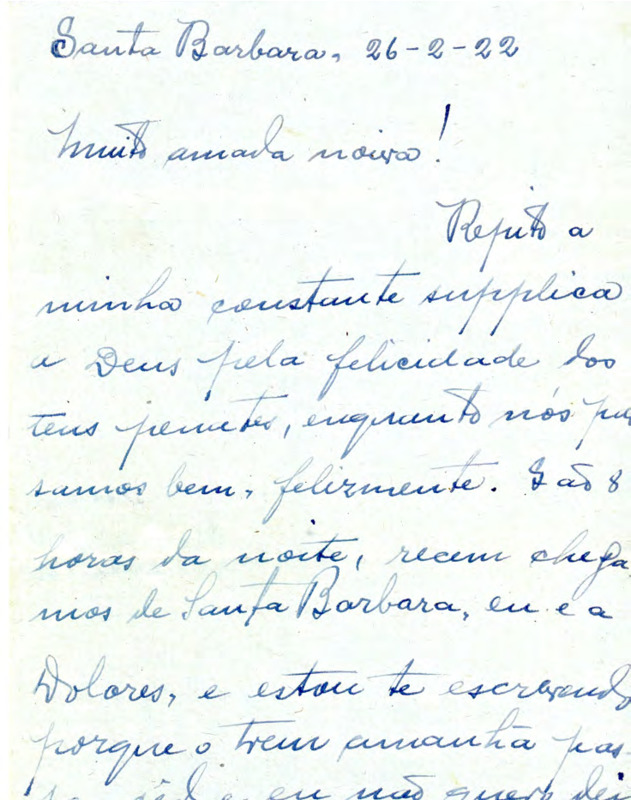 Santa Barbara, 26-2-22
Muito amada noiva!
Repito a
minha constante supplica
a Deus pela felicidade dos
teus parentes, enquanto nós pas
samos bem, felizmente. São 8
horas da noite, recem chega
mos de Santa Barbara, eu e a
Dolores, e estou te escrevendo
porque o trem amanhã pas-
e eu não quero dei